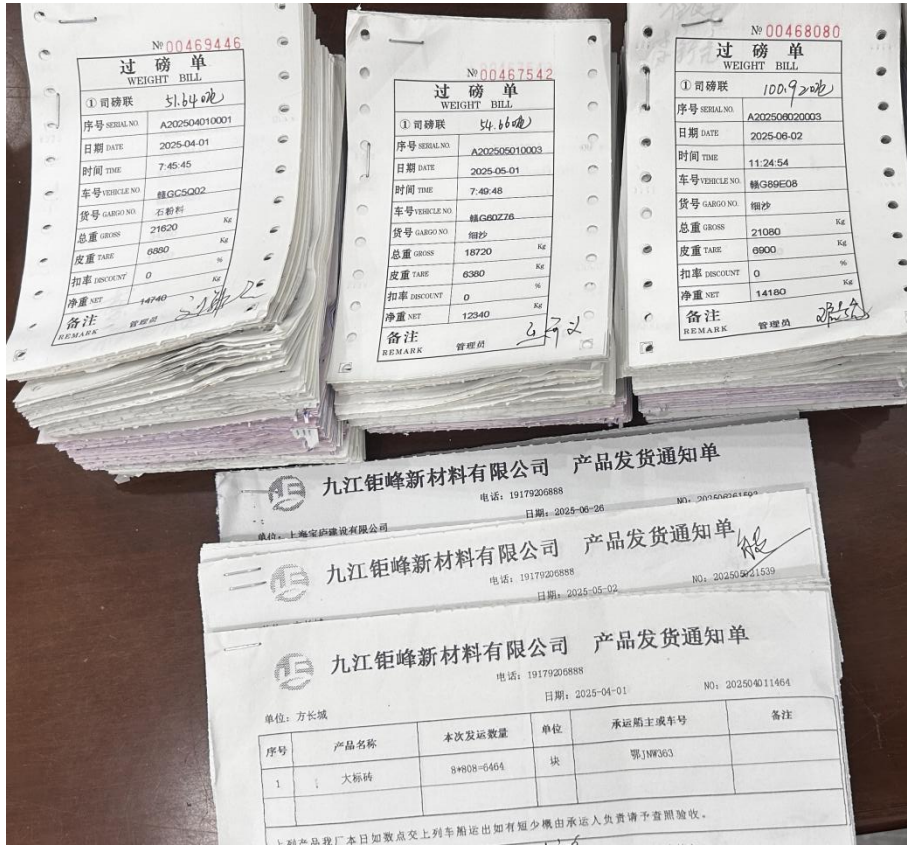 № 00469446
过磅单
WEIGHT BILL
①司磅联 51.64吨
序号 SERIAL NO. A202504010001
日期 DATE 2025-04-01
时间 TIME 7:45:45
车号 VEHICLE NO. 赣GC5Q02
货号 GARGO NO. 石粉料
总重 GROSS 21620 Kg
皮重 TARE 6880 Kg
扣率 DISCOUNT 0 %
净重 NET 14740 Kg
备注 管理员
REMARK
№ 00467542
过磅单
WEIGHT BILL
①司磅联 54.66吨
序号 SERIAL NO. A202505010003
日期 DATE 2025-05-01
时间 TIME 7:49:48
车号 VEHICLE NO. 赣G60Z76
货号 GARGO NO. 细沙
总重 GROSS 18720 Kg
皮重 TARE 6380 Kg
扣率 DISCOUNT 0 %
净重 NET 12340 Kg
备注 管理员
REMARK
№ 00468080
过磅单
WEIGHT BILL
①司磅联 100.92吨
序号 SERIAL NO. A202506020003
日期 DATE 2025-06-02
时间 TIME 11:24:54
车号 VEHICLE NO. 赣G89E08
货号 GARGO NO. 细沙
总重 GROSS 21080 Kg
皮重 TARE 6900 Kg
扣率 DISCOUNT 0 %
净重 NET 14180 Kg
备注 管理员
REMARK
九江钜峰新材料有限公司 产品发货通知单
电话：19179206888
日期：2025-06-26 NO：202506261592
单位：上海宝庐建设有限公司
九江钜峰新材料有限公司 产品发货通知单
电话：19179206888
日期：2025-05-02 NO：202505021539
九江钜峰新材料有限公司 产品发货通知单
电话：19179206888
日期：2025-04-01 NO：202504011464
单位：方长城
序号 产品名称 本次发运数量 单位 承运船主或车号 备注
1 大标砖 8*808=6464 块 鄂JNW363
上列产品我厂本日如数点交上列车船运出如有短少概由承运人负责请予查照验收。